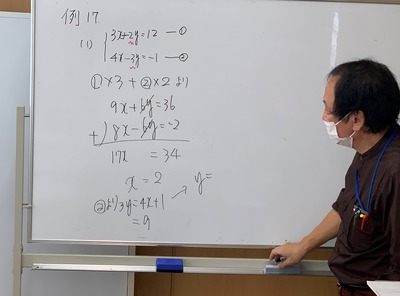 例17.
(1) { 3x+2y=12 ー①
4x-3y=-1 ー②
①×3+②×2より
9x+6y=36
+) 8x-6y=-2
17x =34
x=2
②より3y=4x+1 → y=
=9